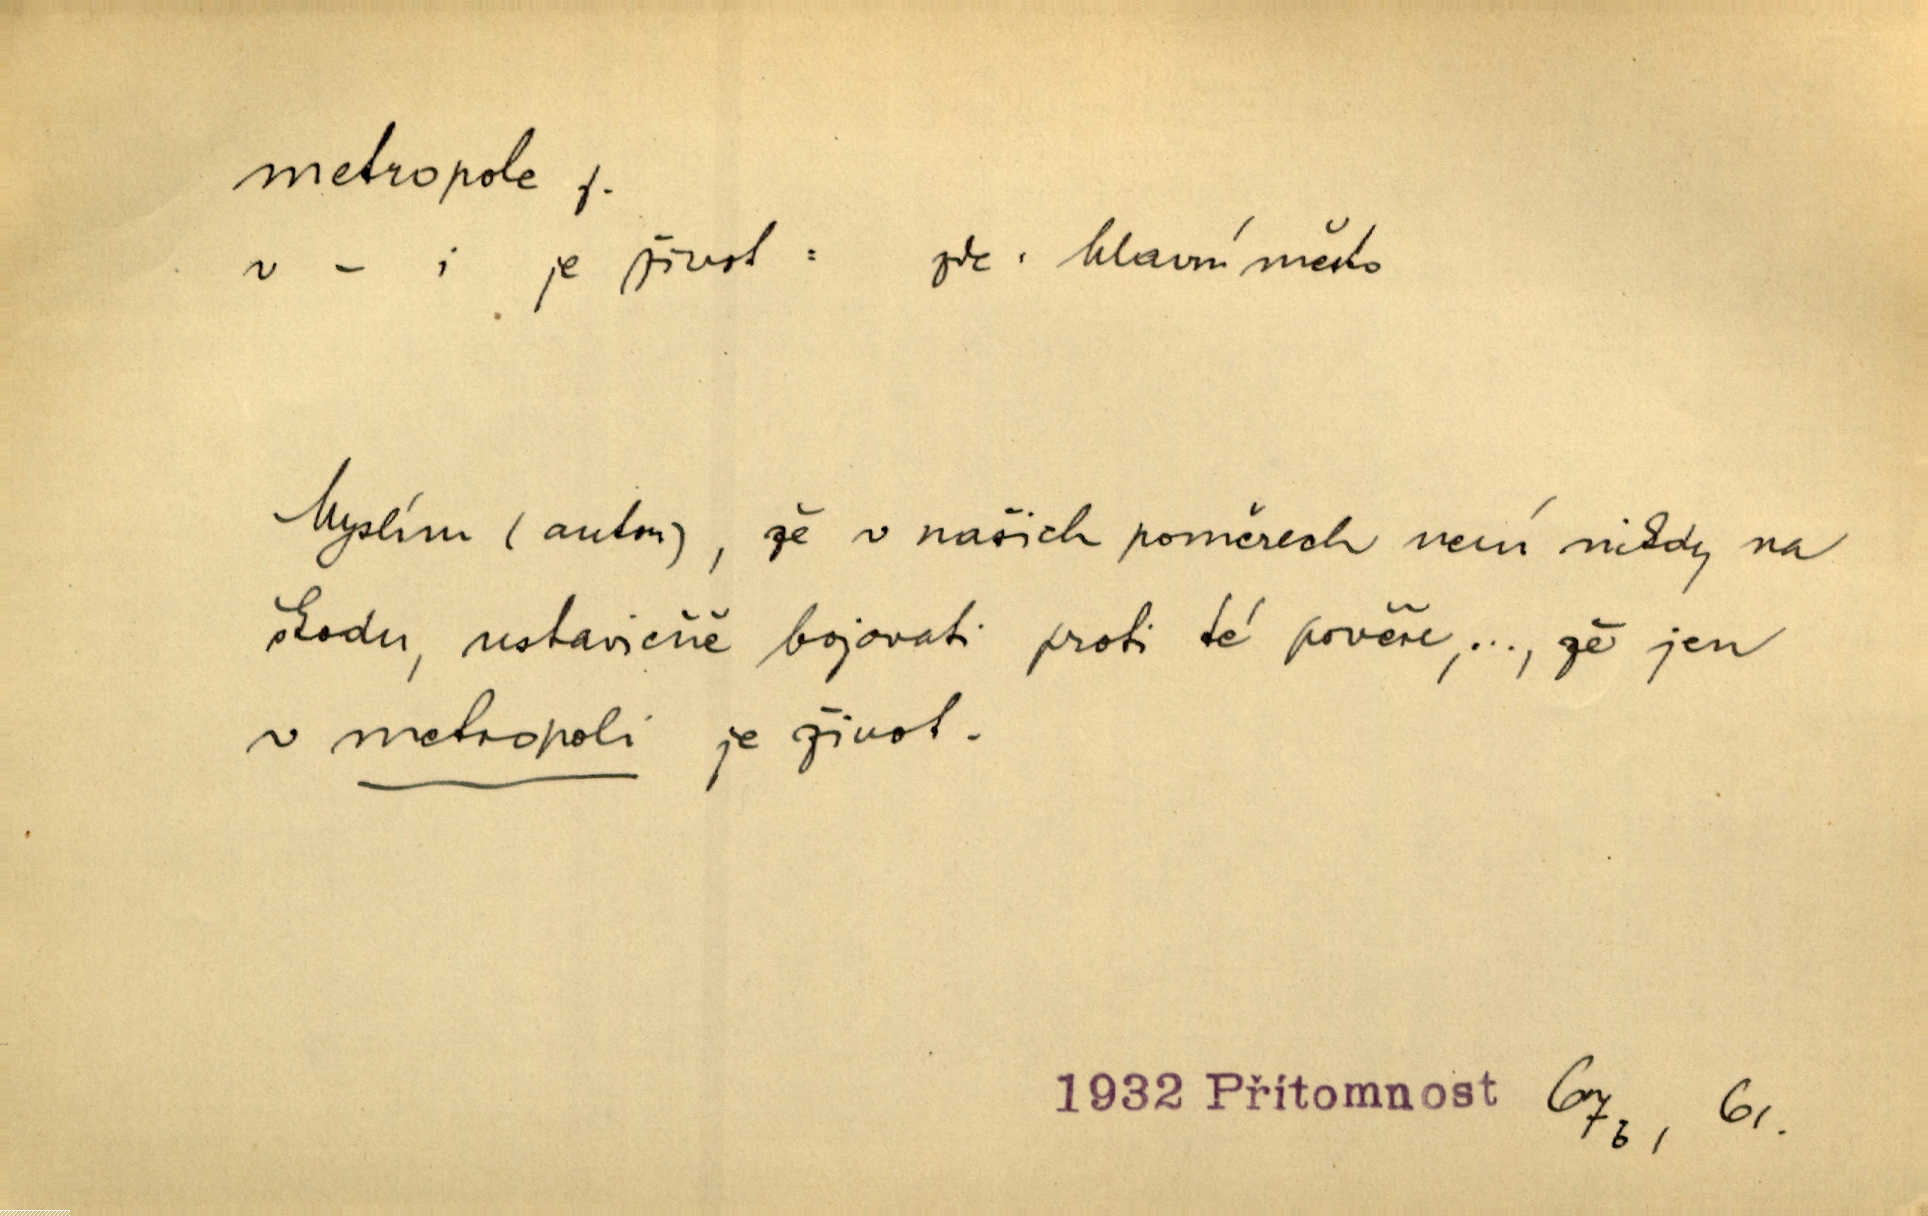 metropole f.
v - i je život : zde : hlavní město
Myslím (autor), že v našich poměrech není nikdy na
škodu, ustavičně bojovati proti té pověře, ..., že jen
v metropoli je život.
1932 Přítomnost 67b,